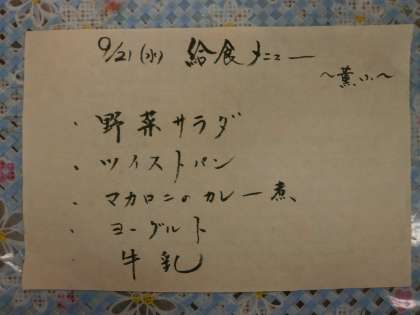 9/21(水) 給食メニュー
〜薫小〜
・野菜サラダ
・ツイストパン
・マカロニのカレー煮
・ヨーグルト
・牛乳